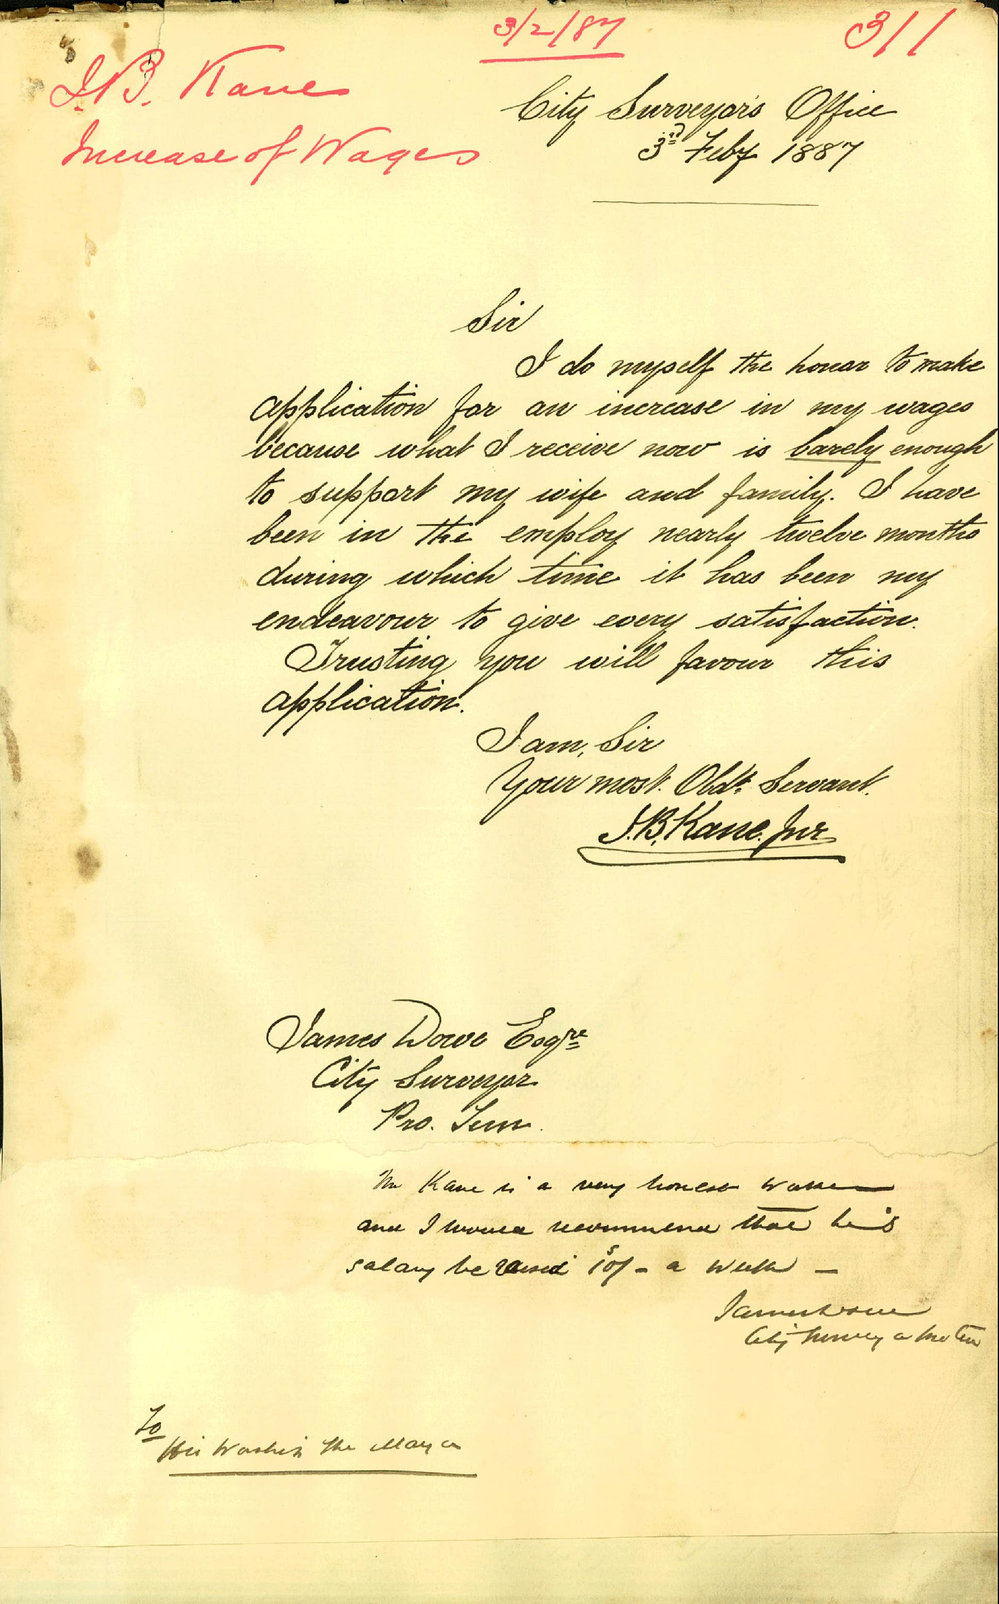 3/2/87
311
J.B. Kane
Increase of Wages
City Surveyor's Office
3rd Feby 1887
Sir
I do myself the honor to make
application for an increase in my wages
because what I receive now is barely enough
to support my wife and family. I have
been in the employ nearly twelve months
during which time it has been my
endeavour to give every satisfaction.
Trusting you will favour this
application.
I am, Sir
Your most Obdt. Servant.
J.B. Kane. Jnr
James Dowe Esqre
City Surveyor
Pro. Tem.
Mr Kane is a very honest
and I would recommend that his
salary be raised 10s/- a week —
James Dowe
City Pro Tem
To
His Worship the Mayor